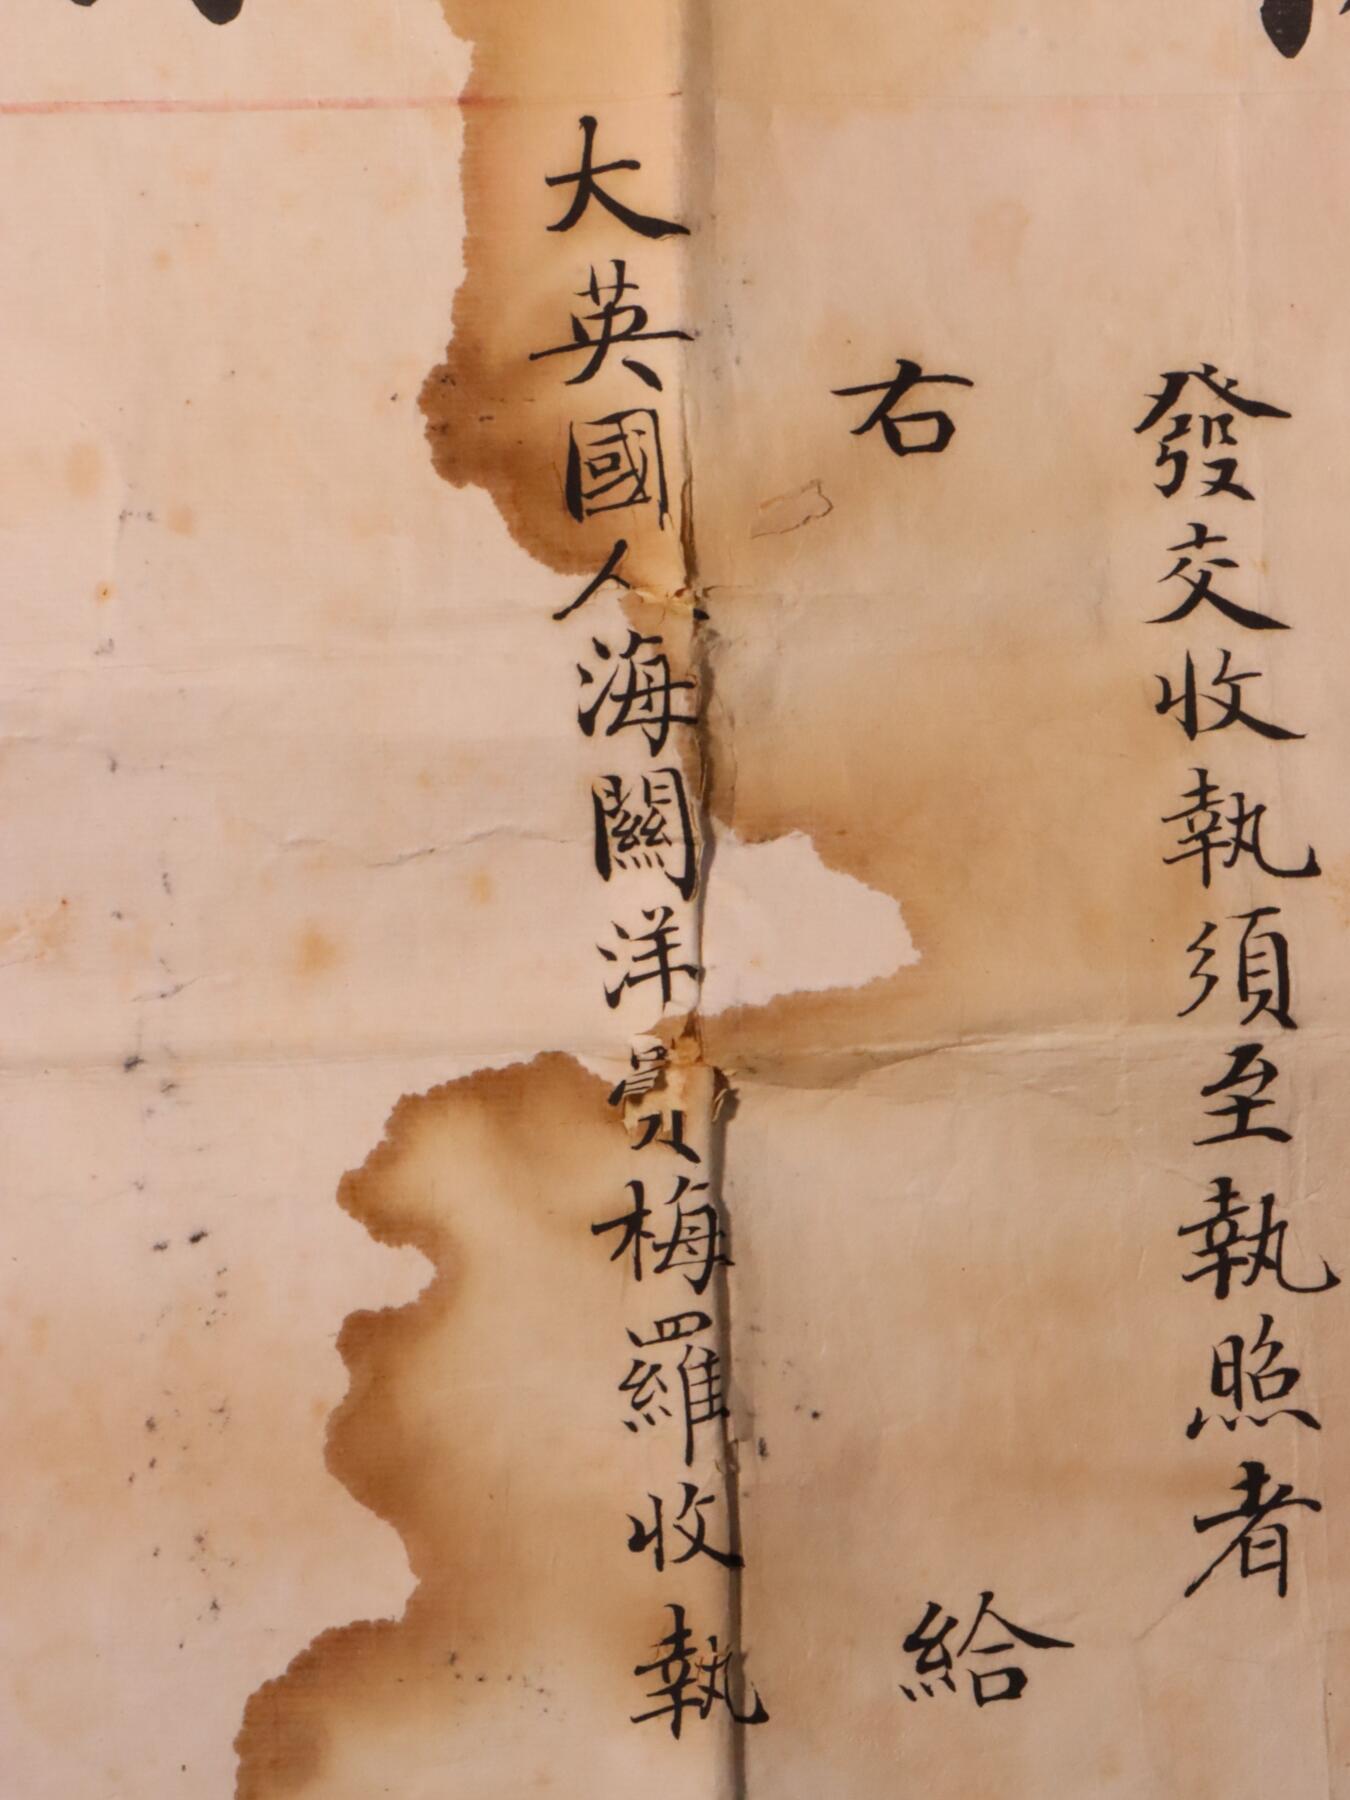 發交收執須至執照者
右
給
大英國人海關洋員梅羅收執